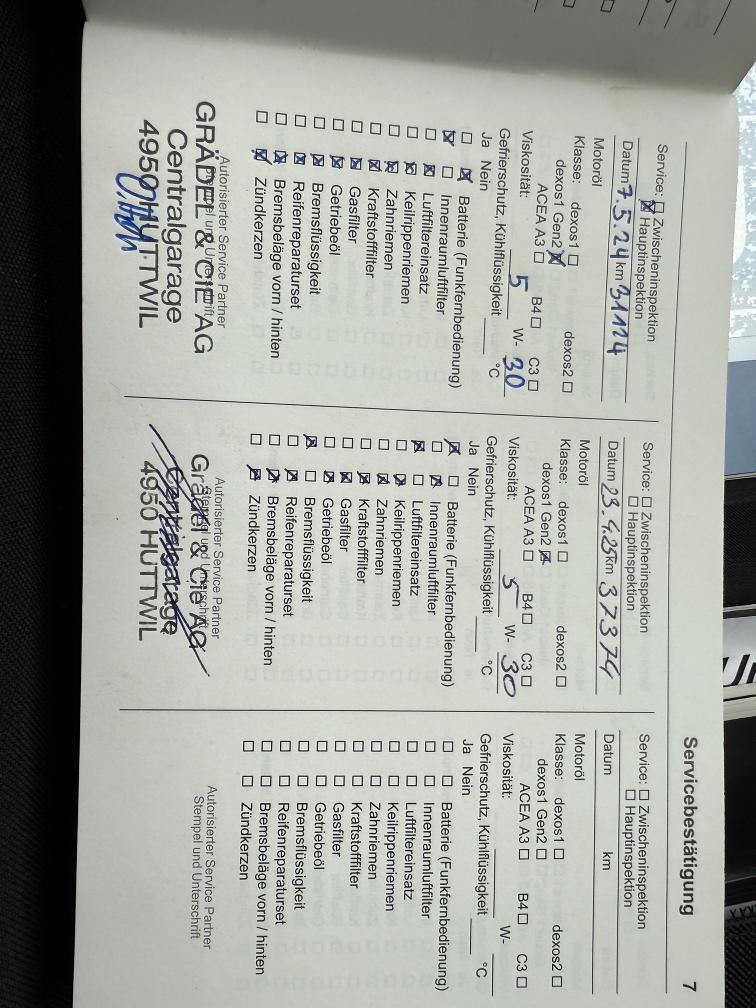 Servicebestätigung 7
Service: ☐ Zwischeninspektion
☒ Hauptinspektion
Datum 7.5.24 km 31124
Motoröl
Klasse: dexos1 ☐ dexos2 ☐
dexos1 Gen2 ☒
ACEA A3 ☐ B4 ☐ C3 ☐
Viskosität: 5 W- 30
Gefrierschutz, Kühlflüssigkeit °C
Ja Nein
☐ ☒ Batterie (Funkfernbedienung)
☒ ☐ Innenraumluftfilter
☐ ☒ Luftfiltereinsatz
☐ ☒ Keilrippenriemen
☐ ☒ Zahnriemen
☐ ☒ Kraftstofffilter
☐ ☒ Gasfilter
☐ ☒ Getriebeöl
☐ ☒ Bremsflüssigkeit
☐ ☒ Reifenreparaturset
☐ ☒ Bremsbeläge vorn / hinten
☐ ☒ Zündkerzen
Autorisierter Service Partner
Stempel und Unterschrift
GRÄDEL & CIE AG
Centralgarage
4950 HUTTWIL
Service: ☐ Zwischeninspektion
☐ Hauptinspektion
Datum 23.4.25 km 37374
Motoröl
Klasse: dexos1 ☐ dexos2 ☐
dexos1 Gen2 ☒
ACEA A3 ☐ B4 ☐ C3 ☐
Viskosität: 5 W- 30
Gefrierschutz, Kühlflüssigkeit °C
Ja Nein
☒ ☐ Batterie (Funkfernbedienung)
☐ ☒ Innenraumluftfilter
☒ ☐ Luftfiltereinsatz
☐ ☒ Keilrippenriemen
☐ ☒ Zahnriemen
☐ ☒ Kraftstofffilter
☐ ☒ Gasfilter
☐ ☒ Getriebeöl
☒ ☐ Bremsflüssigkeit
☐ ☒ Reifenreparaturset
☐ ☒ Bremsbeläge vorn / hinten
☐ ☒ Zündkerzen
Autorisierter Service Partner
Stempel und Unterschrift
Grädel & Cie AG
Centralgarage
4950 HUTTWIL
Service: ☐ Zwischeninspektion
☐ Hauptinspektion
Datum km
Motoröl
Klasse: dexos1 ☐ dexos2 ☐
dexos1 Gen2 ☐
ACEA A3 ☐ B4 ☐ C3 ☐
Viskosität: W-
Gefrierschutz, Kühlflüssigkeit °C
Ja Nein
☐ ☐ Batterie (Funkfernbedienung)
☐ ☐ Innenraumluftfilter
☐ ☐ Luftfiltereinsatz
☐ ☐ Keilrippenriemen
☐ ☐ Zahnriemen
☐ ☐ Kraftstofffilter
☐ ☐ Gasfilter
☐ ☐ Getriebeöl
☐ ☐ Bremsflüssigkeit
☐ ☐ Reifenreparaturset
☐ ☐ Bremsbeläge vorn / hinten
☐ ☐ Zündkerzen
Autorisierter Service Partner
Stempel und Unterschrift